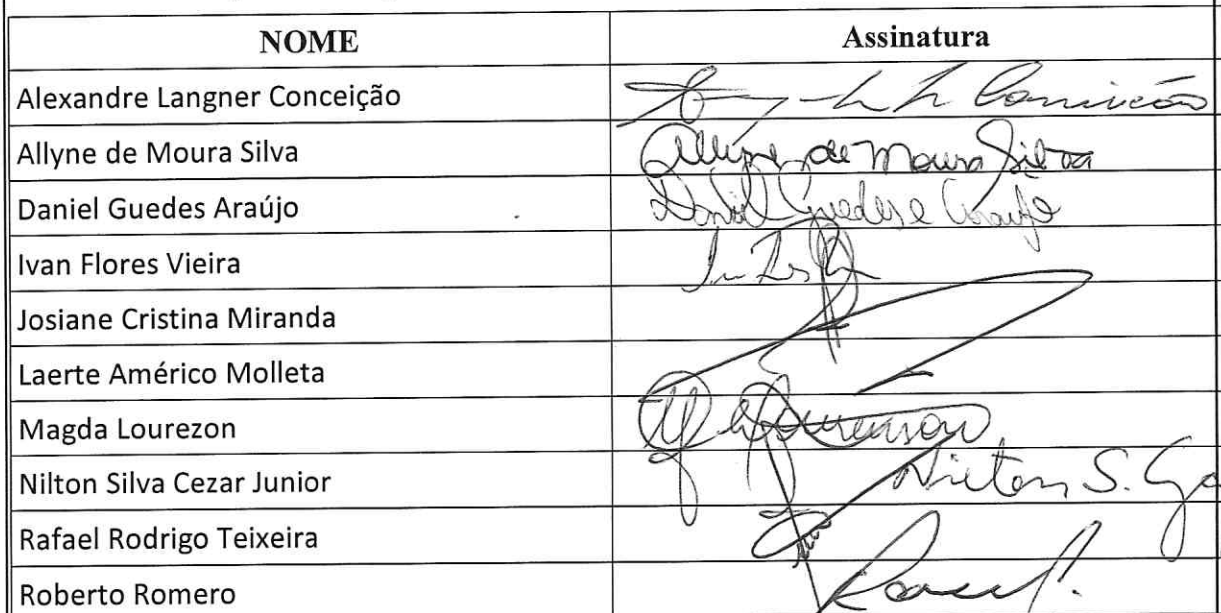 NOME Assinatura
Alexandre Langner Conceição Conceição
Allyne de Moura Silva Allyne de Moura Silva
Daniel Guedes Araújo Daniel Guedes e Araujo
Ivan Flores Vieira
Josiane Cristina Miranda
Laerte Américo Molleta
Magda Lourezon Lourenson
Nilton Silva Cezar Junior Nilton S.
Rafael Rodrigo Teixeira
Roberto Romero